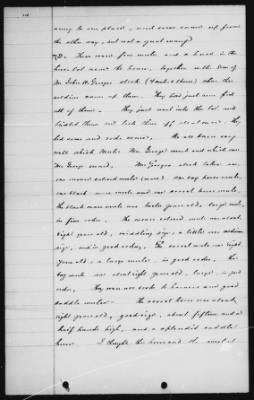 army to one place, and even came up from
the other way, but not a great many?
Q. There were five mules and a horse in the
horse lot near the house, together with some of
Mr. John H. George stock (4 mules & 1 horse) when the
soldiers came up there. They had just been fed
all of them. They just went into the lot and
bridled them and led them off, all at once. They
had some and rode some. We all knew very
well which mules Mr. George's and which
Mr. George owned. Mr. George's stock taken was
one mouse colored mule (mare) one bay horse mule,
one black mare mule and one sorrel horse mule,
the black mare mule was twelve years old, large mule,
in fine order. The mouse colored mule was about
eight years old, middling size, a little over medium
size, and in good order. The sorrel mule was eight
years old, a large mule, in good order, the
bay mule was about eight years old, large, in good
order. They were all broke to harness and good
saddle mules. The sorrel horse was about
eight years old, good size, about fifteen and a
half hands high, and a splendid saddle
horse. I thought the horse and the sorrel